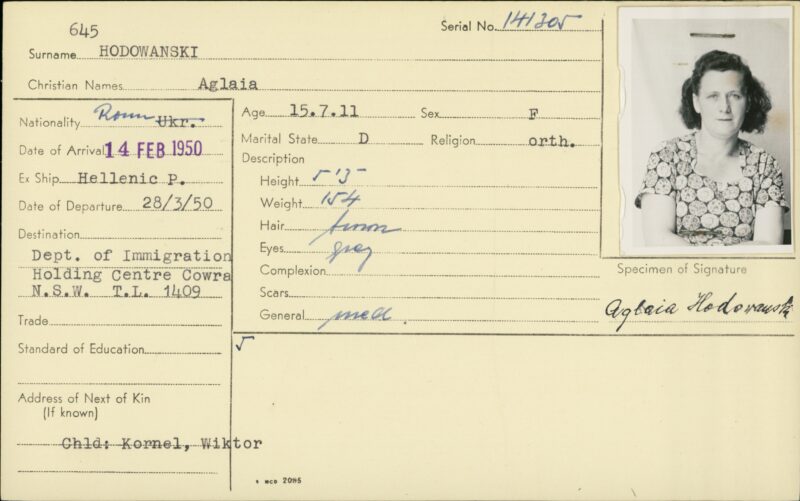 645
Serial No. 141305
Surname HODOWANSKI
Christian Names Aglaia
Nationality Roum Ukr.
Date of Arrival 14 FEB 1950
Ex Ship Hellenic P.
Date of Departure 28/3/50
Destination
Dept. of Immigration
Holding Centre Cowra
N.S.W. T.L. 1409
Trade
Standard of Education
Address of Next of Kin
(If known)
Chld: Kornel, Wiktor
Age 15.7.11 Sex F
Marital State D Religion orth.
Description
Height 5'5"
Weight 154
Hair brown
Eyes grey
Complexion
Scars
General med.
5
Specimen of Signature
Aglaia Hodowanski
MCD 2085